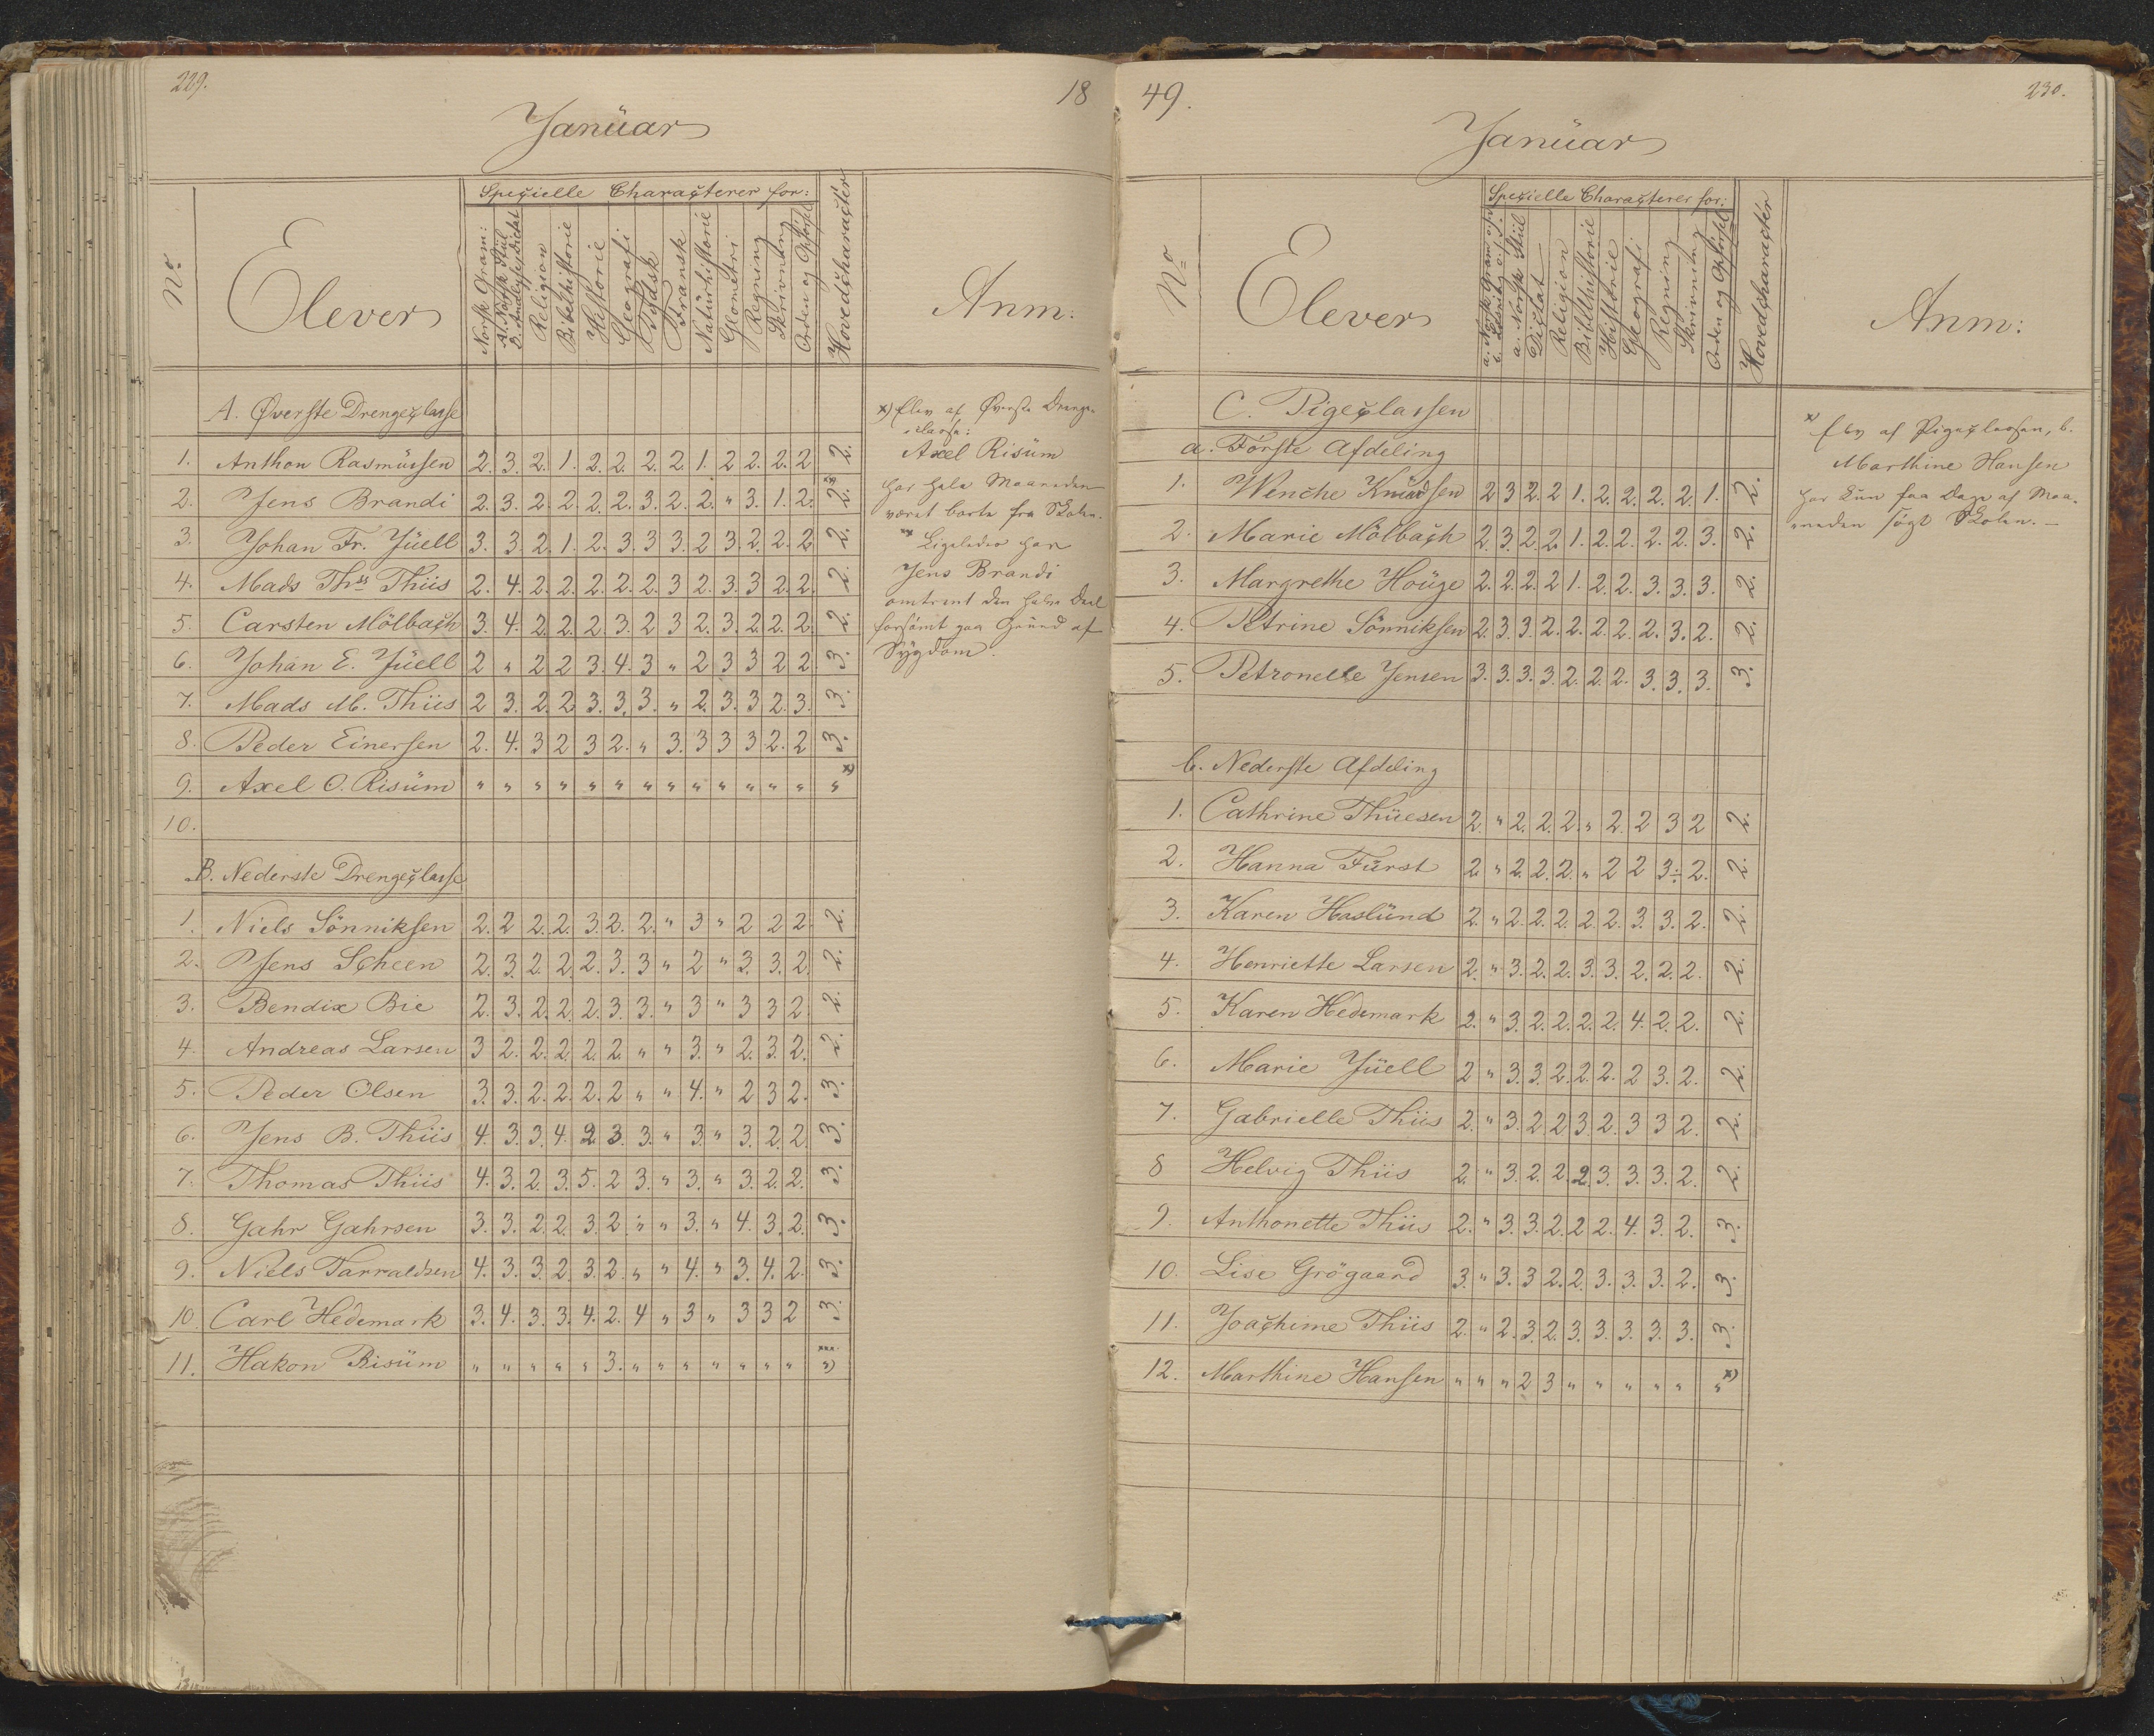 229.
18
Januar
No
Elever
Specielle Characterer for:
Norsk Gram:
A. Norsk Stiil
B. Analyse, Dictat
Religion
Bibelhistorie
Historie
Geografi
Tydsk
Fransk
Naturhistorie
Geometri
Regning
Skrivning
Orden og Opførsel
Hovedcharacter
Anm:
A. Øverste Drengeclasse
1. Anthon Rasmussen 2. 3. 2. 1. 2. 2. 2. 2. 1. 2 2. 2. 2 2.
2. Jens Brandi 2. 3. 2. 2. 2. 2. 3. 2. 2. " 3. 1. 2. 2. xx
3. Johan Fr. Jüell 3. 3. 2. 1. 2. 3. 3 3. 2 3. 2. 2. 2. 2.
4. Mads Ths Thiis 2. 4. 2. 2. 2. 2. 2. 3 2. 3. 3 2. 2. 2.
5. Carsten Mölbach 3. 4. 2. 2. 2. 3. 2 3 2. 3. 2. 2. 2. 2.
6. Johan E. Jüell 2 " 2 2 3. 4. 3 " 2 3 3 2 2. 3.
7. Mads M. Thiis 2 3. 2. 2 3. 3. 3. " 2. 3. 3 2. 3. 3.
8. Peder Einersen 2. 4. 3 2 3 2. " 3. 3 3 3 2. 2 3.
9. Axel O. Risüm " " " " " " " " " " " " " " x)
10.
B. Nederste Drengeclasse
1. Niels Sönniksen 2. 2 2. 2. 3. 2. 2. " 3 " 2 2 2. 2.
2. Jens Scheen 2. 3. 2. 2. 2. 3. 3 " 2 " 3. 3. 2. 2.
3. Bendix Bie 2. 3. 2. 2. 2. 3. 3. " 3 " 3 3 2. 2.
4. Andreas Larsen 3 2. 2. 2. 2. 2. " " 3. " 2. 3. 2. 2.
5. Peder Olsen 3. 3. 2. 2. 2. 2 " " 4. " 2 3 2. 3.
6. Jens B. Thiis 4. 3. 3. 4. 2 3. 3. " 3. " 3. 2. 2. 3.
7. Thomas Thiis 4. 3. 2. 3. 5. 2 3. " 3. " 3. 2. 2. 3.
8. Gahr Gahrsen 3. 3. 2. 2. 3. 2. " " 3. " 4. 3. 2. 3.
9. Niels Tarraldsen 4. 3. 3. 2. 3. 2. " " 4. " 3. 4. 2. 3.
10. Carl Hedemark 3. 4. 3. 3. 4. 2. 4 " 3 " 3 3 2 3.
11. Hakon Risüm " " " " " 3. " " " " " " " " xxx)
x) Elev af Øverste Drenge-
classe:
Axel Risüm
har hele Maaneden
været borte fra Skolen.
xx Ligeledes har
Jens Brandi
omtrent den halve Deel
forsömt paa Grund af
Sygdom.
49.
230.
Januar
No
Elever
Specielle Characterer for:
a. Norsk Gram
b. Læsning
a. Norsk Stiil
Dictat
Religion
Bibelhistorie
Historie
Geografi
Regning
Skrivning
Orden og Opførsel
Hovedcharacter
Anm:
C. Pigeclassen
a. Første Afdeling
1. Wenche Knudsen 2 3 2. 2 1. 2. 2. 2. 2. 1. 2.
2. Marie Mölbach 2. 3. 2. 2. 1. 2. 2. 2. 2. 3. 2.
3. Margrethe Houge 2. 2. 2. 2 1. 2. 2. 3. 3. 3. 2.
4. Petrine Sönniksen 2. 3. 3. 2. 2. 2. 2. 2. 3. 2. 2.
5. Petronelle Jensen 3. 3. 3. 3. 2. 2. 2. 3. 3. 3. 3.
b. Nederste Afdeling
1. Cathrine Thüesen 2. " 2. 2. 2. " 2. 2 3 2 2.
2. Hanna Fürst 2. " 2. 2. 2. " 2 2 3÷ 2. 2.
3. Karen Haslünd 2. " 2. 2. 2. 2. 2. 3. 3. 2. 2.
4. Henriette Larsen 2. " 3. 2. 2. 3. 3. 2. 2. 2. 2.
5. Karen Hedemark 2. " 3. 2. 2. 2. 2. 4. 2. 2. 2.
6. Marie Jüell 2 " 3. 3. 2. 2. 2. 2 3. 2. 2.
7. Gabrielle Thiis 2. " 3. 2. 2 3. 2. 3 3 2. 2.
8 Helvig Thiis 2. " 3. 2. 2. 2. 3. 3. 3. 2. 2.
9. Anthonette Thiis 2. " 3. 3. 2. 2 2. 4. 3. 2. 3.
10. Lise Grögaard 3. " 3. 3 2. 2. 3. 3. 3. 2. 3.
11. Joachime Thiis 2. " 2. 3. 2. 3. 3. 3. 3. 3. 3.
12. Marthine Hansen " " " 2 3 " " " " " " x)
x) Elev af Pigeclassen, b.
Marthine Hansen
har kun faa Dage af Maa-
neden søgt Skolen. —